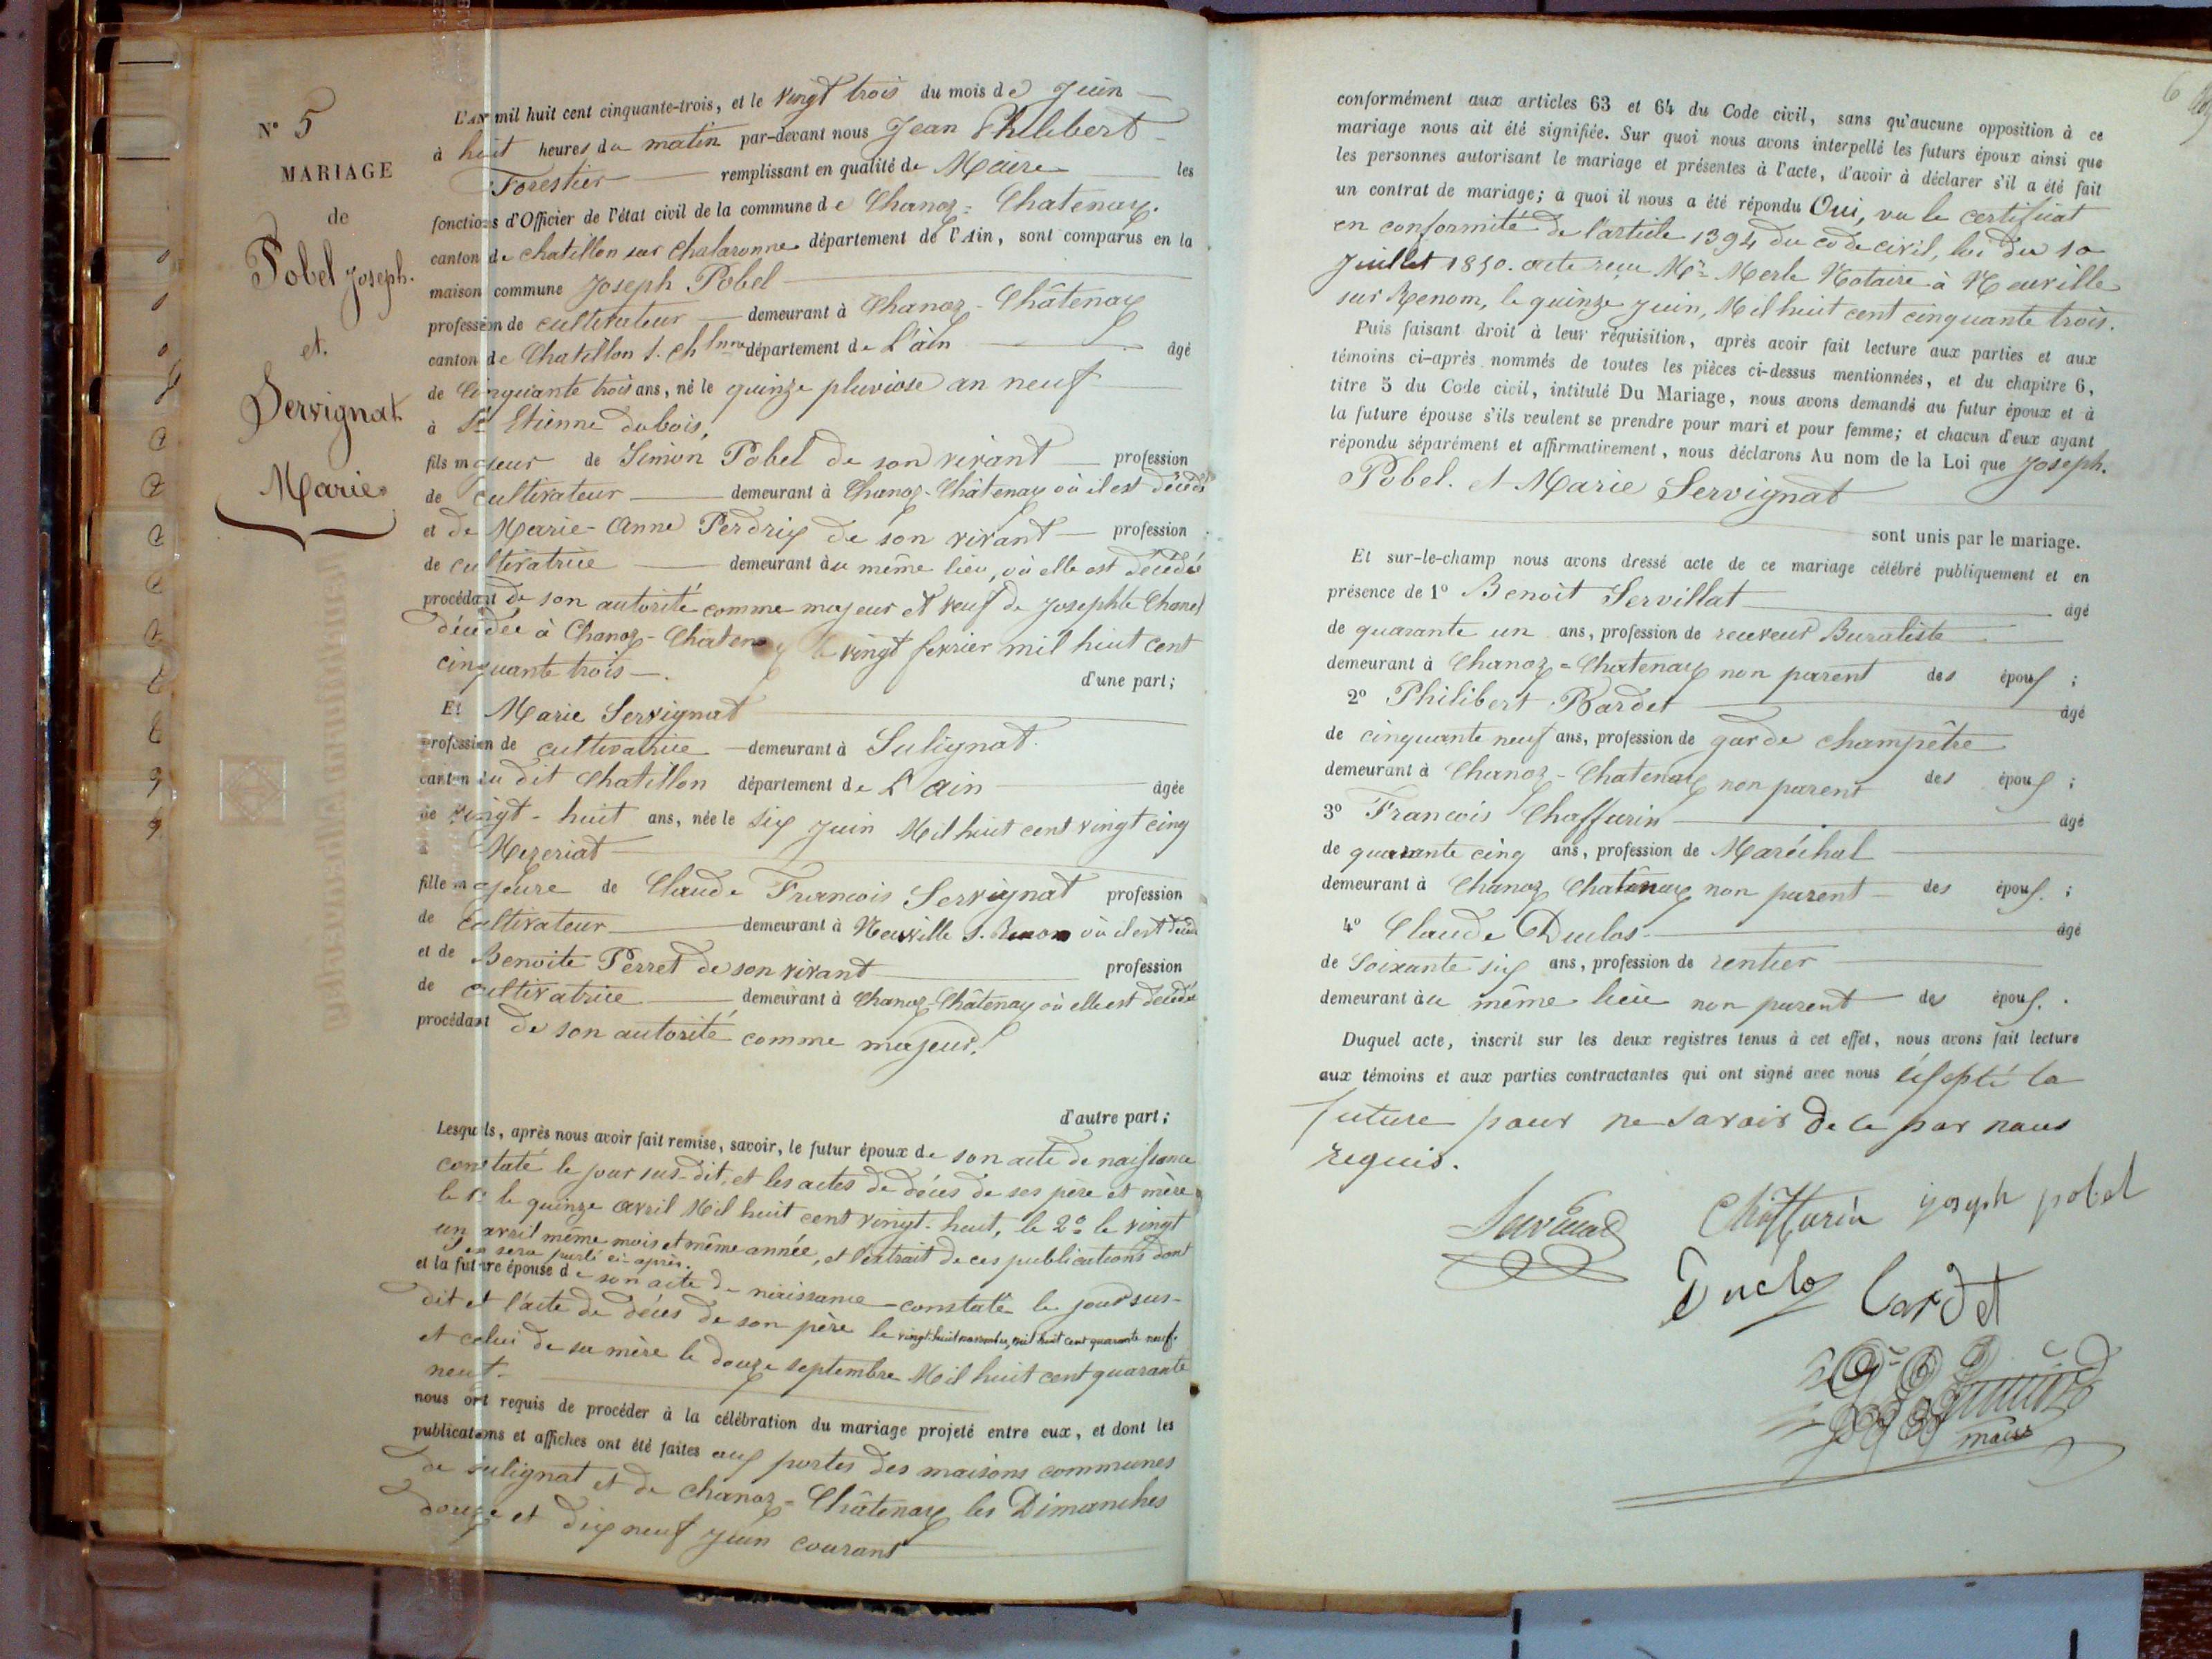 N° 5
MARIAGE
de
Pobel Joseph.
et
Servignat
Marie
L'an mil huit cent cinquante-trois, et le vingt trois du mois de Juin
à huit heures du matin par-devant nous Jean Philibert
Forestier remplissant en qualité de Maire les
fonctions d'Officier de l'état civil de la commune de Chanoz-Chatenay.
canton de chatillon sur chalaronne département de l'Ain, sont comparus en la
maison commune Joseph Pobel
profession de cultivateur demeurant à Chanoz-Châtenay
canton de Chatillon s. chlnne département de L'ain âgé
de Cinquante trois ans, né le quinze pluviose an neuf
à St Etienne dubois,
fils majeur de Simon Pobel de son vivant profession
de cultivateur demeurant à Chanoz-Châtenay où il est décédé
et de Marie-Anne Perdrix de son vivant profession
de cultivatrice demeurant au même lieu, où elle est décédée
procédant de son autorité comme majeur et veuf de Josephte Chanel
décédée à Chanoz-Chatenay le vingt fevrier mil huit cent
cinquante trois.
d'une part;
Et Marie Servignat
profession de cultivatrice demeurant à Sulignat.
canton du dit Chatillon département de L'ain âgée
de vingt-huit ans, née le six Juin Mil huit cent vingt cinq
à Mezeriat
fille majeure de Claude Francois Servignat profession
de cultivateur demeurant à Neuville s. Renom où il est décédé
et de Benoite Perret de son vivant profession
de cultivatrice demeurant à Chanoz-Châtenay où elle est décédée
procédant de son autorité comme majeur.
d'autre part;
Lesquels, après nous avoir fait remise, savoir, le futur époux de son acte de naissance
constaté le jour sus-dit, et les actes de décès de ses père et mère
le 1er le quinze avril Mil huit cent vingt-huit, le 2e le vingt
un avril même mois et même année, et l'extrait de ces publications dont
en sera parlé ci-après.
et la future épouse de son acte de naissance constaté le jour sus-
dit et l'acte de décès de son père le vingt-huit novembre, mil huit cent quarante neuf.
et celui de sa mère le douze septembre Mil huit cent quarante
neuf.
nous ont requis de procéder à la célébration du mariage projeté entre eux, et dont les
publications et affiches ont été faites aux portes des maisons communes
de sulignat et de chanoz-Châtenay les Dimanches
douze et dix neuf Juin courant
6
conformément aux articles 63 et 64 du Code civil, sans qu'aucune opposition à ce
mariage nous ait été signifiée. Sur quoi nous avons interpellé les futurs époux ainsi que
les personnes autorisant le mariage et présentes à l'acte, d'avoir à déclarer s'il a été fait
un contrat de mariage; à quoi il nous a été répondu Oui, vu le certificat
en conformité de l'article 1394 du code civil, loi du 10
Juillet 1850. acte reçu Me Merle Notaire à Neuville
sur Renom, le quinze juin, Mil huit cent cinquante trois.
Puis faisant droit à leur réquisition, après avoir fait lecture aux parties et aux
témoins ci-après nommés de toutes les pièces ci-dessus mentionnées, et du chapitre 6,
titre 5 du Code civil, intitulé Du Mariage, nous avons demandé au futur époux et à
la future épouse s'ils veulent se prendre pour mari et pour femme; et chacun d'eux ayant
répondu séparément et affirmativement, nous déclarons Au nom de la Loi que Joseph.
Pobel. et Marie Servignat
sont unis par le mariage.
Et sur-le-champ nous avons dressé acte de ce mariage célébré publiquement et en
présence de 1° Benoit Servillat âgé
de quarante un ans, profession de receveur Buraliste
demeurant à Chanoz-Chatenay non parent des époux;
2° Philibert Bardet âgé
de cinquante neuf ans, profession de garde champêtre
demeurant à Chanoz-Chatenay non parent des époux;
3° Francois Chaffurin âgé
de quarante cinq ans, profession de Maréchal
demeurant à Chanoz Chatenay non parent des époux.;
4° Claude Duclos âgé
de Soixante six ans, profession de rentier
demeurant au même lieu non parent des époux.
Duquel acte, inscrit sur les deux registres tenus à cet effet, nous avons fait lecture
aux témoins et aux parties contractantes qui ont signé avec nous éxsepté la
future pour ne savoir de ce par nous
requis.
Servillat Chaffurin joseph pobel
Duclos bardet
maire